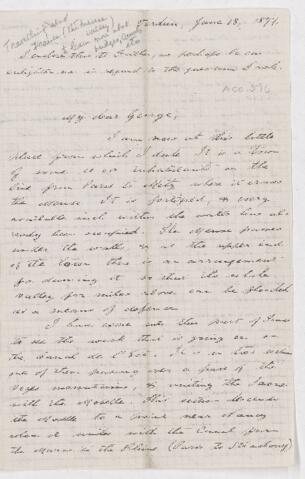 Verdun, June 18, 1877.
I enclose this to Father, as perhaps he can
enlighten me in regard to the questions I ask.
Acc 376
My dear George,
I am now at this little
place from which I date. It is a town
of some inhabitants on the
line from Paris to Metz, where it crosses
the Meuse. It is fortified, & every
available inch within the walls has al-
ready been occupied. The Meuse passes
under the walls, & at the upper end
of the town there is an arrangement
for damming it so that the whole
valley for miles above can be flooded
as a means of defence.
I have come into this part of France
to see the work that is going on on
the Canal de l'Est. It is in two sections
one of them running over a part of the
Vosges mountains, & uniting the Saone
with the Moselle. This section descends
the Moselle to a point near Nancy
where it unites with the Canal from
the Marne to the Rhine (Paris to Strasbourg)